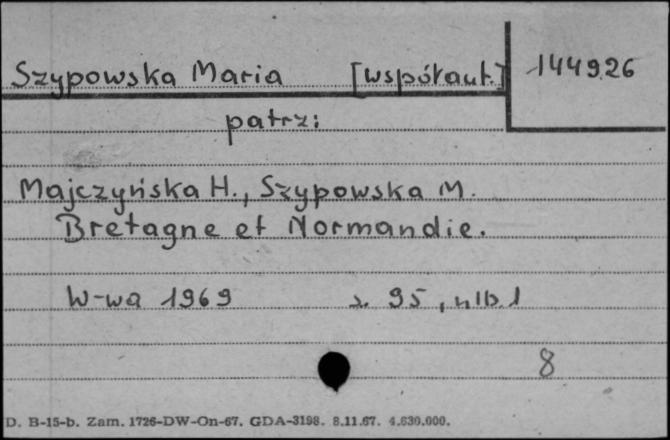 Szypowska Maria [współaut.] 144926
patrz:
Majczyńska H., Szypowska M.
Bretagne et Normandie.
W-wa 1969 s. 95, nlb. 1
8
D. B-15-b. Zam. 1726-DW-On-67. GDA-3198. 8.11.67. 4.630.000.